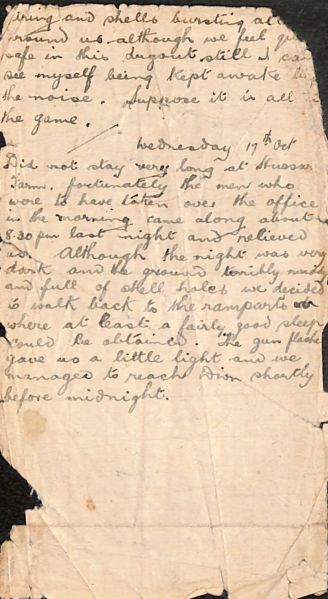 firing and shells bursting all
around us although we feel quite
safe in this dugout still I can
see myself being kept awake by
the noise. Suppose it is all in
the game.
Wednesday 17th Oct
Did not stay very long at Hussar
Farm, fortunately the men who
were to have taken over the office
in the morning came along about
8.30 pm last night and relieved
us. Although the night was very
dark and the ground terribly muddy
and full of shell holes we decided
to walk back to the ramparts
where at least a fairly good sleep
could be obtained. The gun flashes
gave us a little light and we
managed to reach Divn shortly
before midnight.